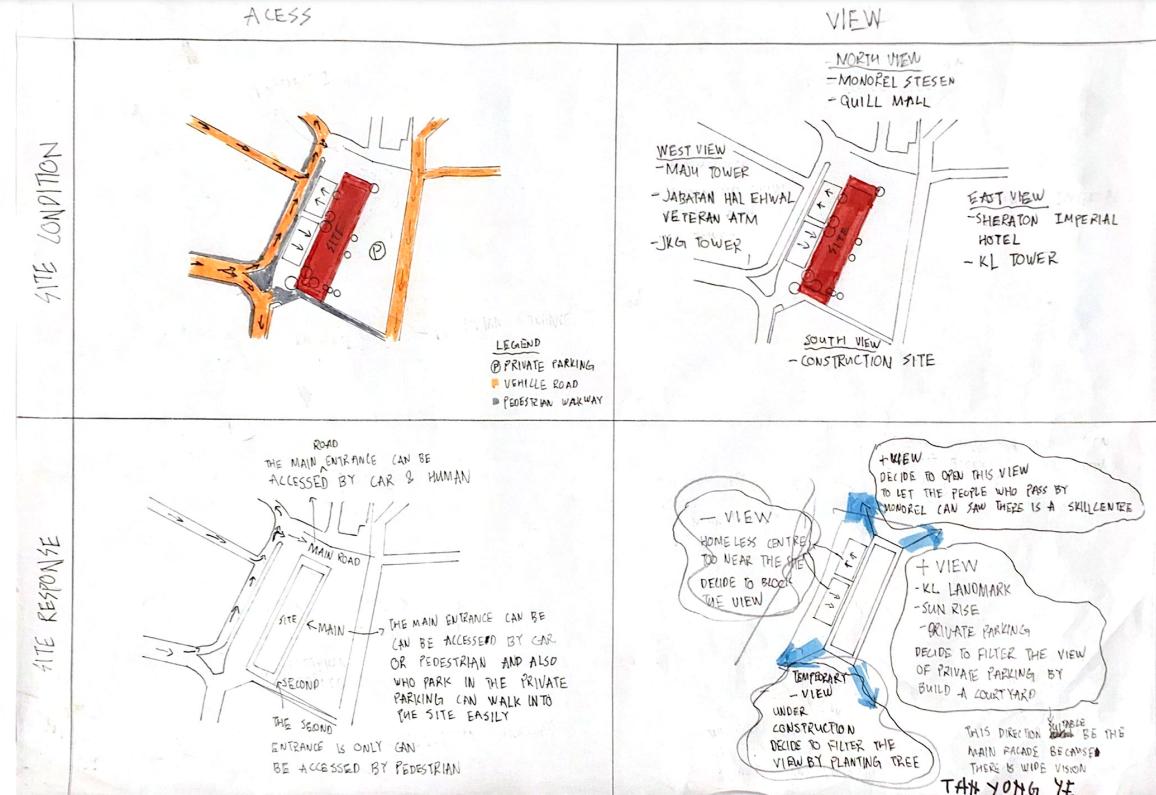 ACESS
VIEW
SITE CONDITION
SITE
P
LEGEND
P PRIVATE PARKING
VEHILLE ROAD
PEDESTRIAN WALKWAY
- NORTH VIEW
- MONOREL STESEN
- QUILL MALL
WEST VIEW
- MAJU TOWER
- JABATAN HAL EHWAL
VETERAN ATM
- JKG TOWER
SITE
EAST VIEW
- SHERATON IMPERIAL
HOTEL
- KL TOWER
SOUTH VIEW
- CONSTRUCTION SITE
SITE RESPONSE
ROAD
THE MAIN ENTRANCE CAN BE
ACCESSED BY CAR & HUMAN
MAIN ROAD
SITE
MAIN
THE MAIN ENTRANCE CAN BE
CAN BE ACCESSED BY CAR
OR PEDESTRIAN AND ALSO
WHO PARK IN THE PRIVATE
PARKING CAN WALK INTO
THE SITE EASILY
SECOND
THE SEOND
ENTRANCE IS ONLY CAN
BE ACCESSED BY PEDESTRIAN
+ VIEW
DECIDE TO OPEN THIS VIEW
TO LET THE PEOPLE WHO PASS BY
MONOREL CAN SAW THERE IS A SKILLCENTRE
- VIEW
HOMELESS CENTRE
TOO NEAR THE SITE
DECIDE TO BLOCK
THE VIEW
+ VIEW
- KL LANDMARK
- SUN RISE
- PRIVATE PARKING
DECIDE TO FILTER THE VIEW
OF PRIVATE PARKING BY
BUILD A COURTYARD
TEMPORARY
- VIEW
UNDER
CONSTRUCTION
DECIDE TO FILTER THE
VIEW BY PLANTING TREE
SUITABLE
THIS DIRECTION BE THE
MAIN FACADE BECAUSE
THERE IS WIDE VISION
TAN YONG YI